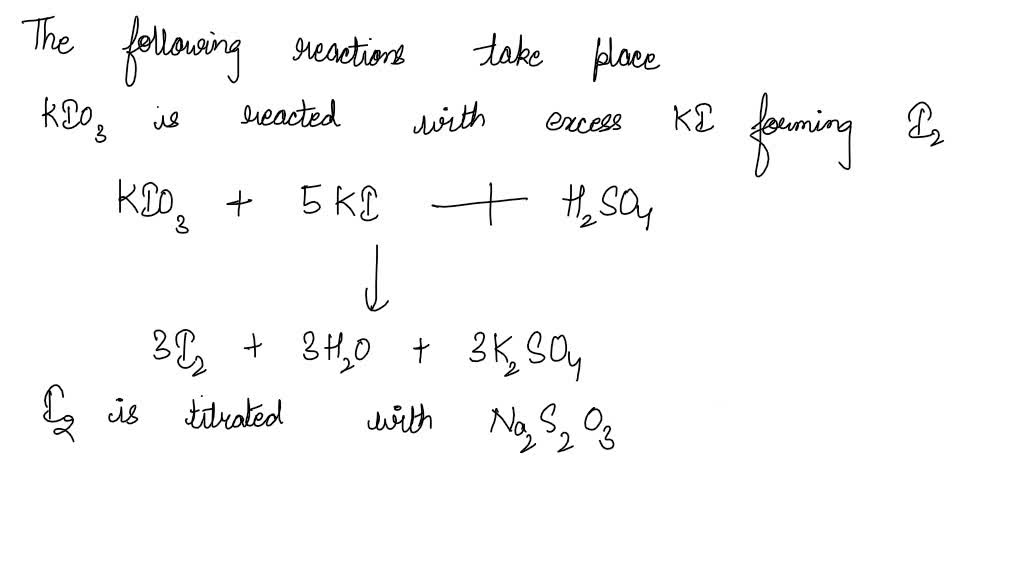 The following reactions take place
KIO₃ is reacted with excess KI forming I₂
KIO₃ + 5KI + H₂SO₄
↓
3I₂ + 3H₂O + 3K₂SO₄
I₂ is titrated with Na₂S₂O₃